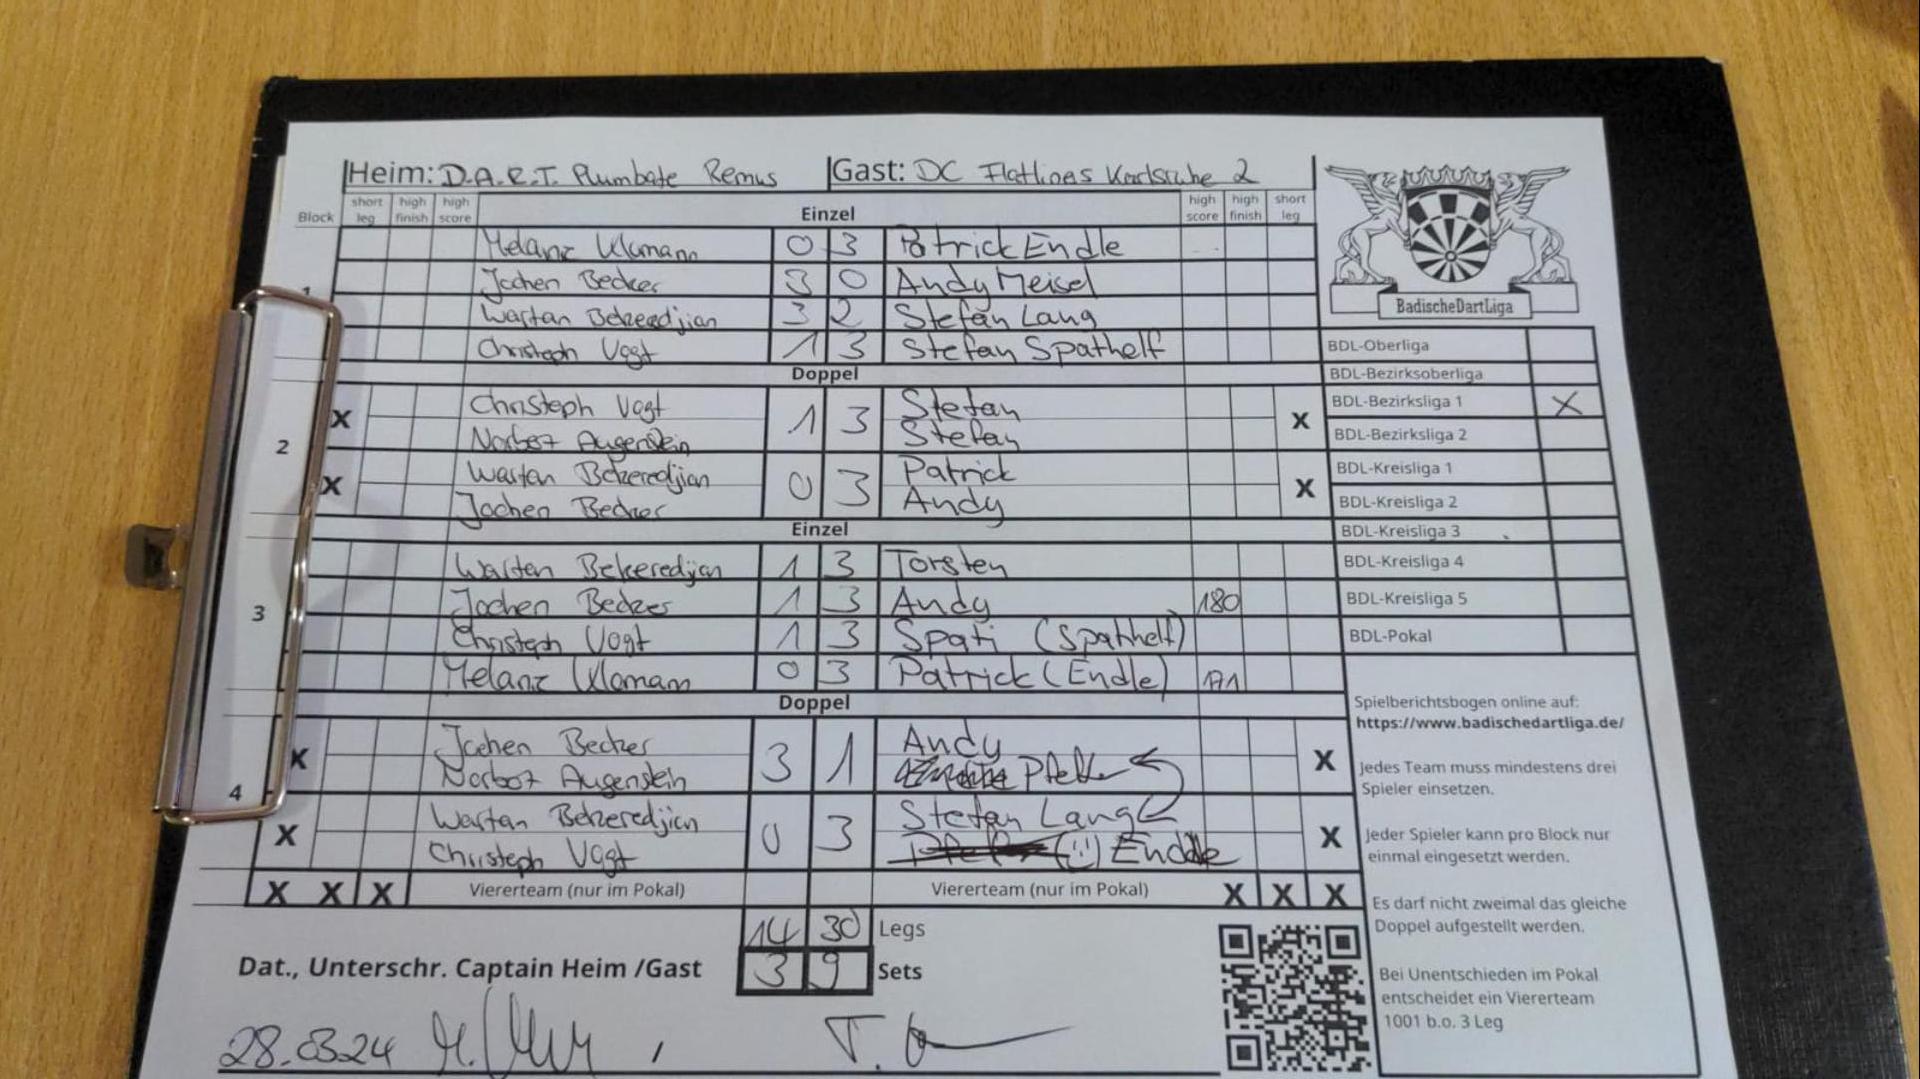 Heim: D.A.R.T. Plumbate Remus Gast: DC Flatlines Karlsruhe 2
Block short leg high finish high score Einzel high score high finish short leg
Melanz Ulomann 0 3 Patrick Endle
1 Jochen Becker 3 0 Andy Meisel
Wartan Bekeredjian 3 2 Stefan Lang
Christoph Vogt 1 3 Stefan Spathelf
Doppel
X Christoph Vogt 1 3 Stefan X
2 Norbert Augenstein Stefan
X Wartan Bekeredjian 0 3 Patrick X
Jochen Becker Andy
Einzel
Wartan Bekeredjian 1 3 Torsten
3 Jochen Becker 1 3 Andy 180
Christoph Vogt 1 3 Spati (Spathelf)
Melanz Ulomann 0 3 Patrick (Endle) 171
Doppel
X Jochen Becker 3 1 Andy X
4 Norbert Augenstein
X Wartan Bekeredjian 0 3 Stefan Lang X
Christoph Vogt (:) Endle
X X X Viererteam (nur im Pokal) Viererteam (nur im Pokal) X X X
14 30 Legs
Dat., Unterschr. Captain Heim /Gast 3 9 Sets
28.03.24
BadischeDartLiga
BDL-Oberliga
BDL-Bezirksoberliga
BDL-Bezirksliga 1 X
BDL-Bezirksliga 2
BDL-Kreisliga 1
BDL-Kreisliga 2
BDL-Kreisliga 3
BDL-Kreisliga 4
BDL-Kreisliga 5
BDL-Pokal
Spielberichtsbogen online auf:
https://www.badischedartliga.de/
Jedes Team muss mindestens drei
Spieler einsetzen.
Jeder Spieler kann pro Block nur
einmal eingesetzt werden.
Es darf nicht zweimal das gleiche
Doppel aufgestellt werden.
Bei Unentschieden im Pokal
entscheidet ein Viererteam
1001 b.o. 3 Leg